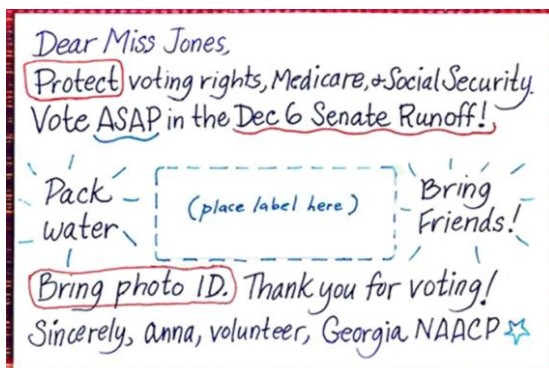 Dear Miss Jones,
Protect voting rights, Medicare, & Social Security.
Vote ASAP in the Dec 6 Senate Runoff!
Pack water
(place label here)
Bring Friends!
Bring photo ID. Thank you for voting!
Sincerely, anna, volunteer, Georgia NAACP